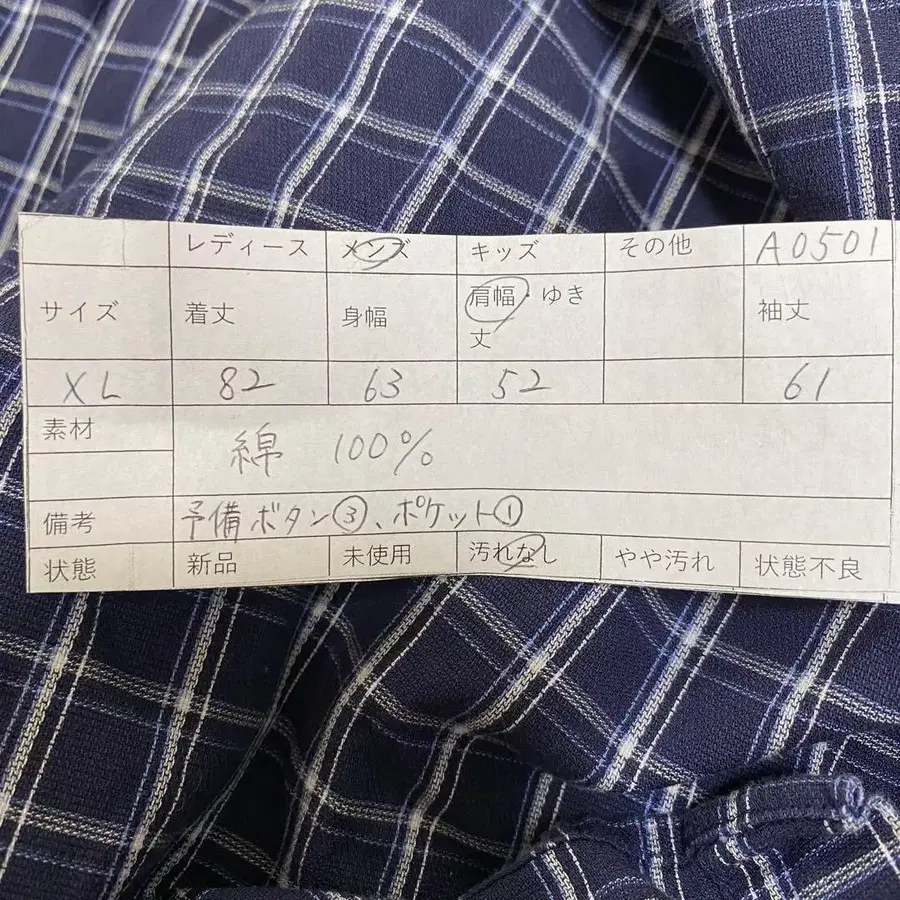 レディース メンズ キッズ その他 A0501
サイズ 着丈 身幅 肩幅・ゆき丈 袖丈
XL 82 63 52 61
素材 綿 100%
備考 予備ボタン③、ポケット①
状態 新品 未使用 汚れなし やや汚れ 状態不良